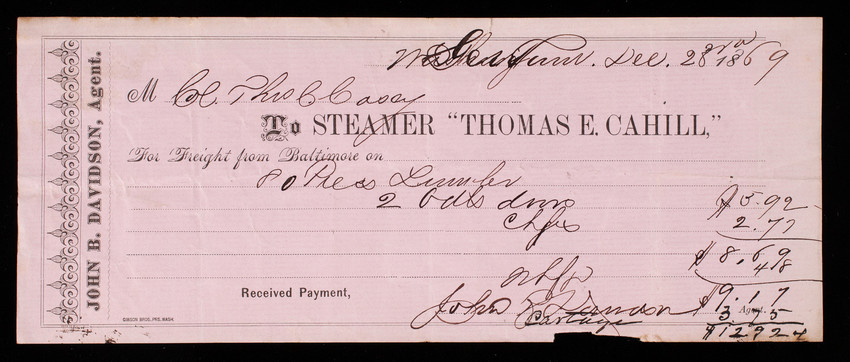 Dec. 28 1869
M Col. Thos C Casey
To STEAMER "THOMAS E. CAHILL,"
For Freight from Baltimore on
80 Pces Lumber
2 Bdls $5.92
Chgs 2.77
$8.69
Whfg 48
$9.17
Received Payment,
John B Davidson Agent.
Cartage 3.75
$12.92
JOHN B. DAVIDSON, Agent.
GIBSON BROS., PRS. WASH.